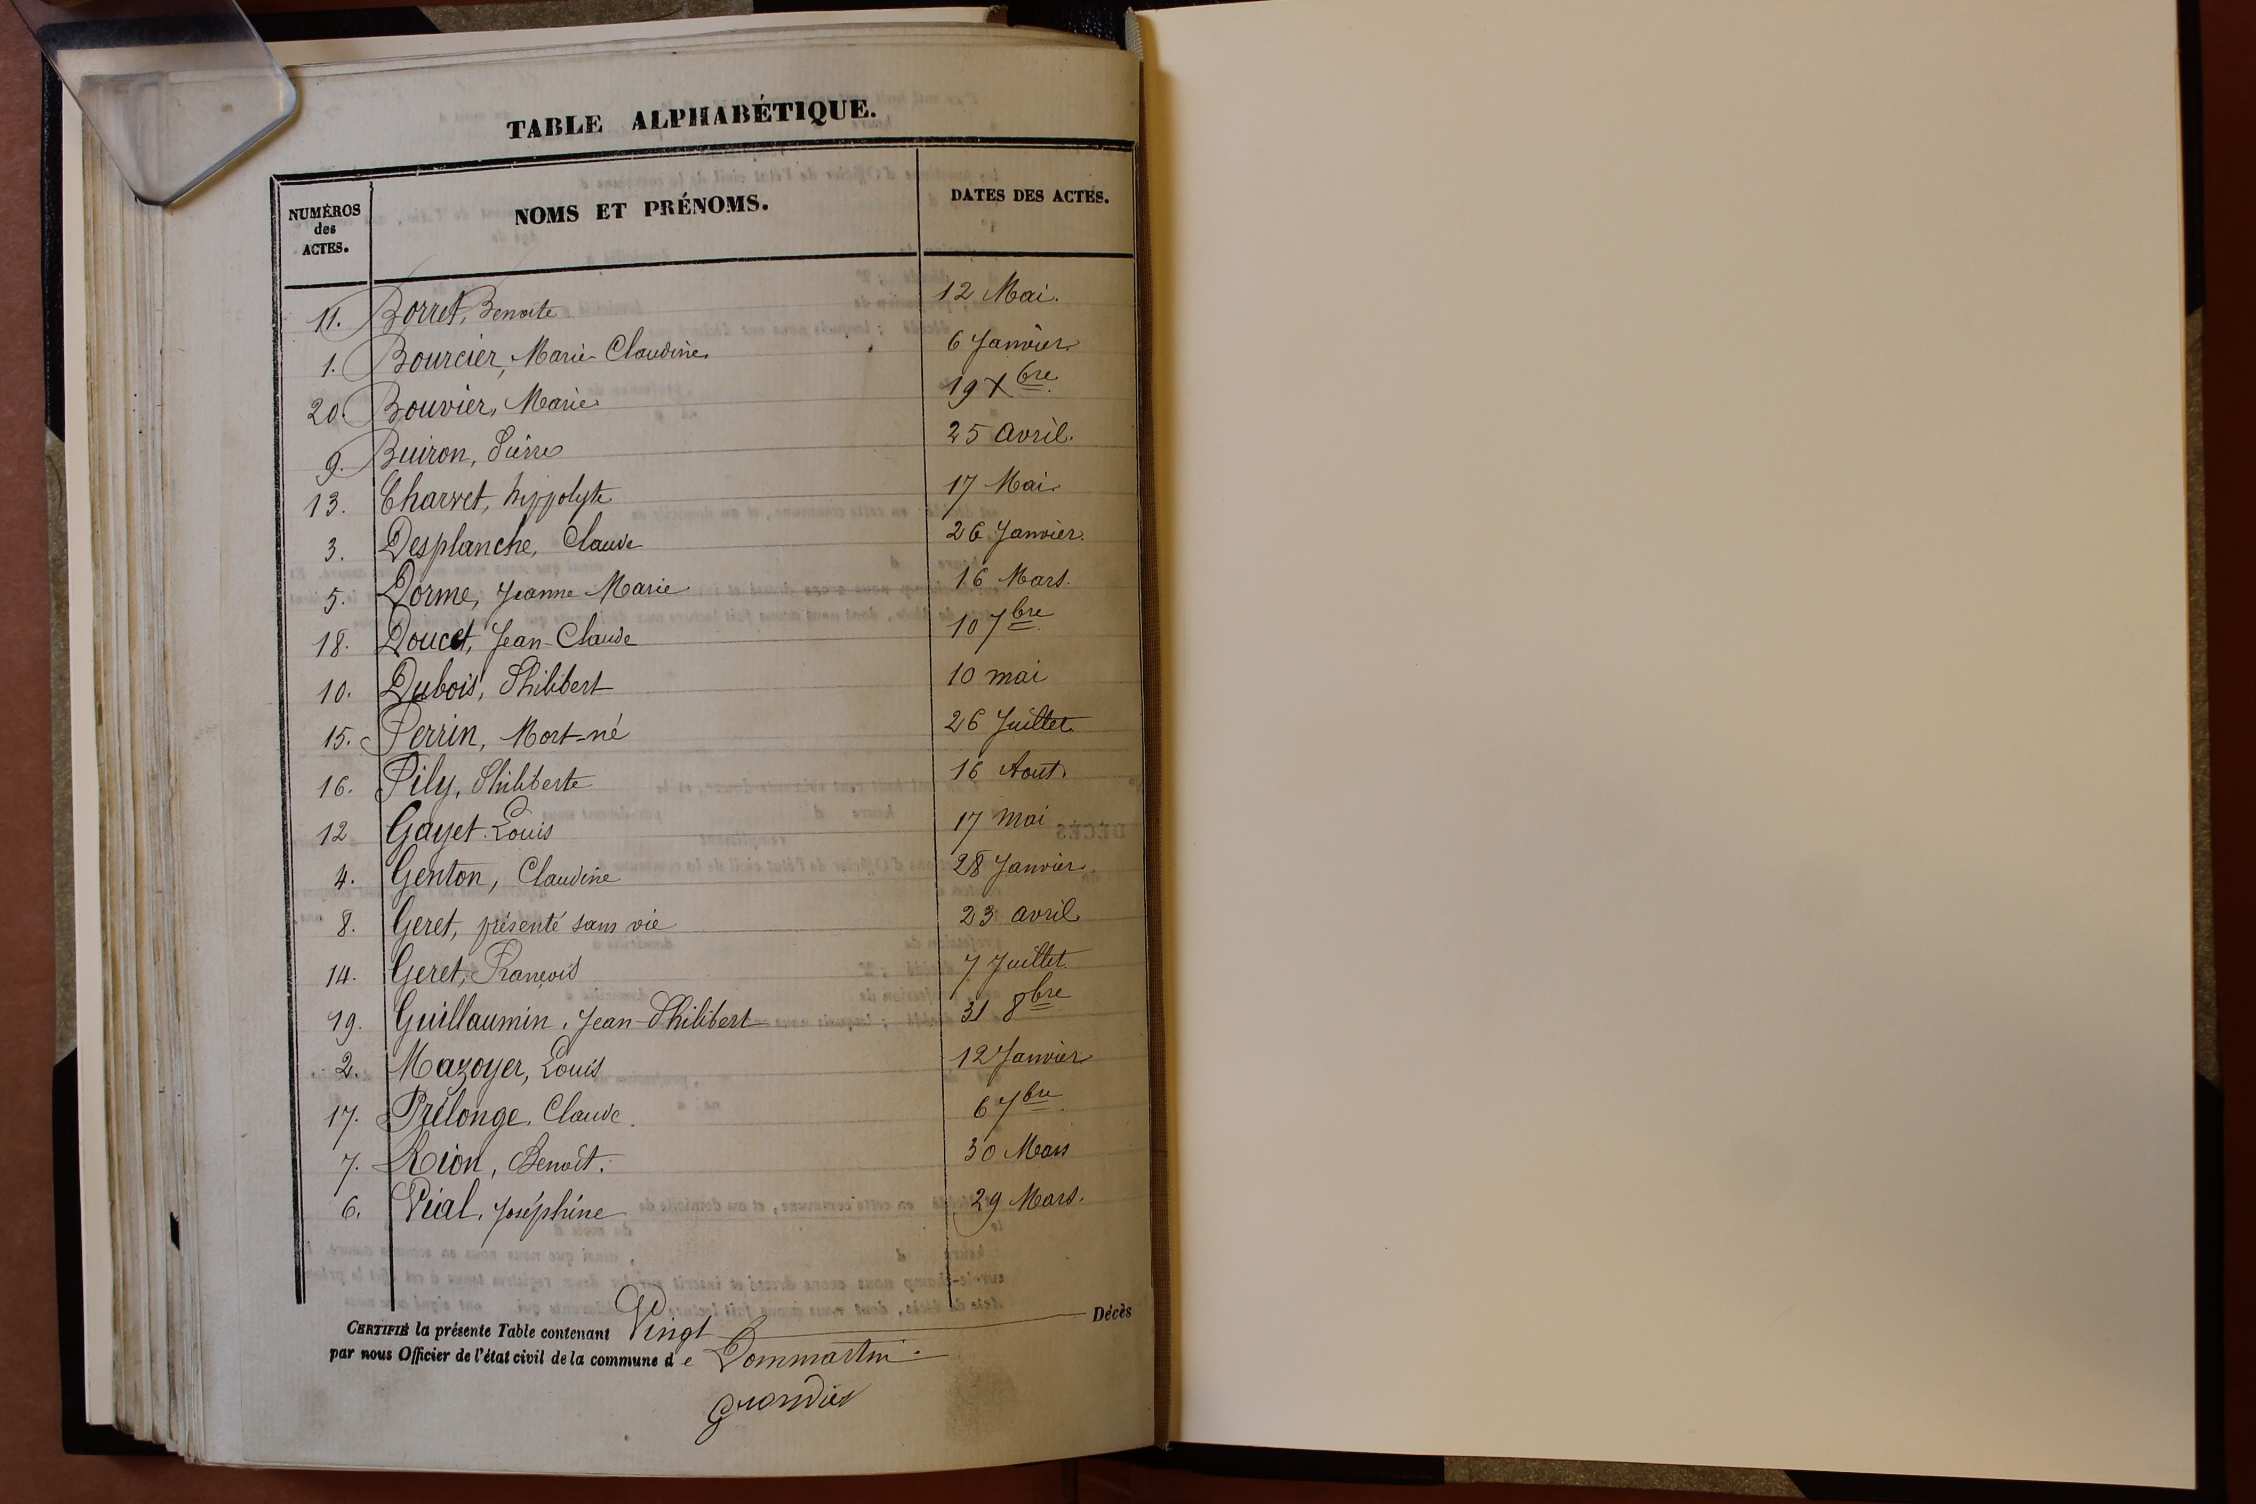 TABLE ALPHABÉTIQUE.
NUMÉROS des ACTES. NOMS ET PRÉNOMS. DATES DES ACTES.
11. Borret, Benoite 12 Mai.
1. Bourcier, Marie-Claudine 6 Janvier.
20. Bouvier, Marie 19 Xbre.
9. Buiron, Pierre 25 Avril.
13. Charvet, hippolyte 17 Mai.
3. Desplanche, Claude 26 Janvier.
5. Dorme, Jeanne Marie 16 Mars.
18. Doucet, Jean-Claude 10 7bre
10. Dubois, Philibert 10 mai
15. Perrin, Mort-né 26 Juillet.
16. Pily, Philiberte 16 Aout.
12 Gayet. Louis 17 Mai
4. Genton, Claudine 28 Janvier.
8. Geret, présenté sans vie 23 avril
14. Geret, François 7 Juillet.
19. Guillaumin, Jean-Philibert 31 8bre
2. Mazoyer, Louis 12 Janvier
17. Prélonge, Claude. 6 7bre
7. Rion, Benoît. 30 Mars
6. Vial, Joséphine 29 Mars.
CERTIFIÉ la présente Table contenant Vingt Décès
par nous Officier de l'état civil de la commune de Dommartin.